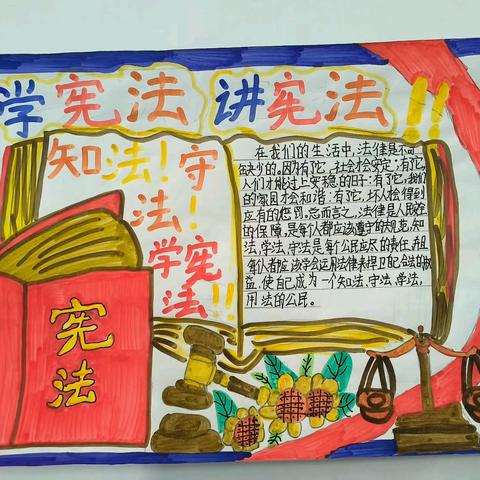 学宪法 讲宪法!!
知法!守
法!
学宪
法!!
在我们的生活中,法律是不可
缺少的。因为有它,社会才会安定;有它,
人们才能过上安稳的日子;有它,我们
的家园才会和谐;有它,坏人会得到
应有的惩罚。总而言之,法律是人民
的保障,是每个人都应该遵守的规范,知
法、学法、守法是每个公民应尽的责任,并且
每个人都应该学会运用法律来捍卫自己合法的权
益,使自己成为一个知法、守法、学法,
用法的公民。
宪
法